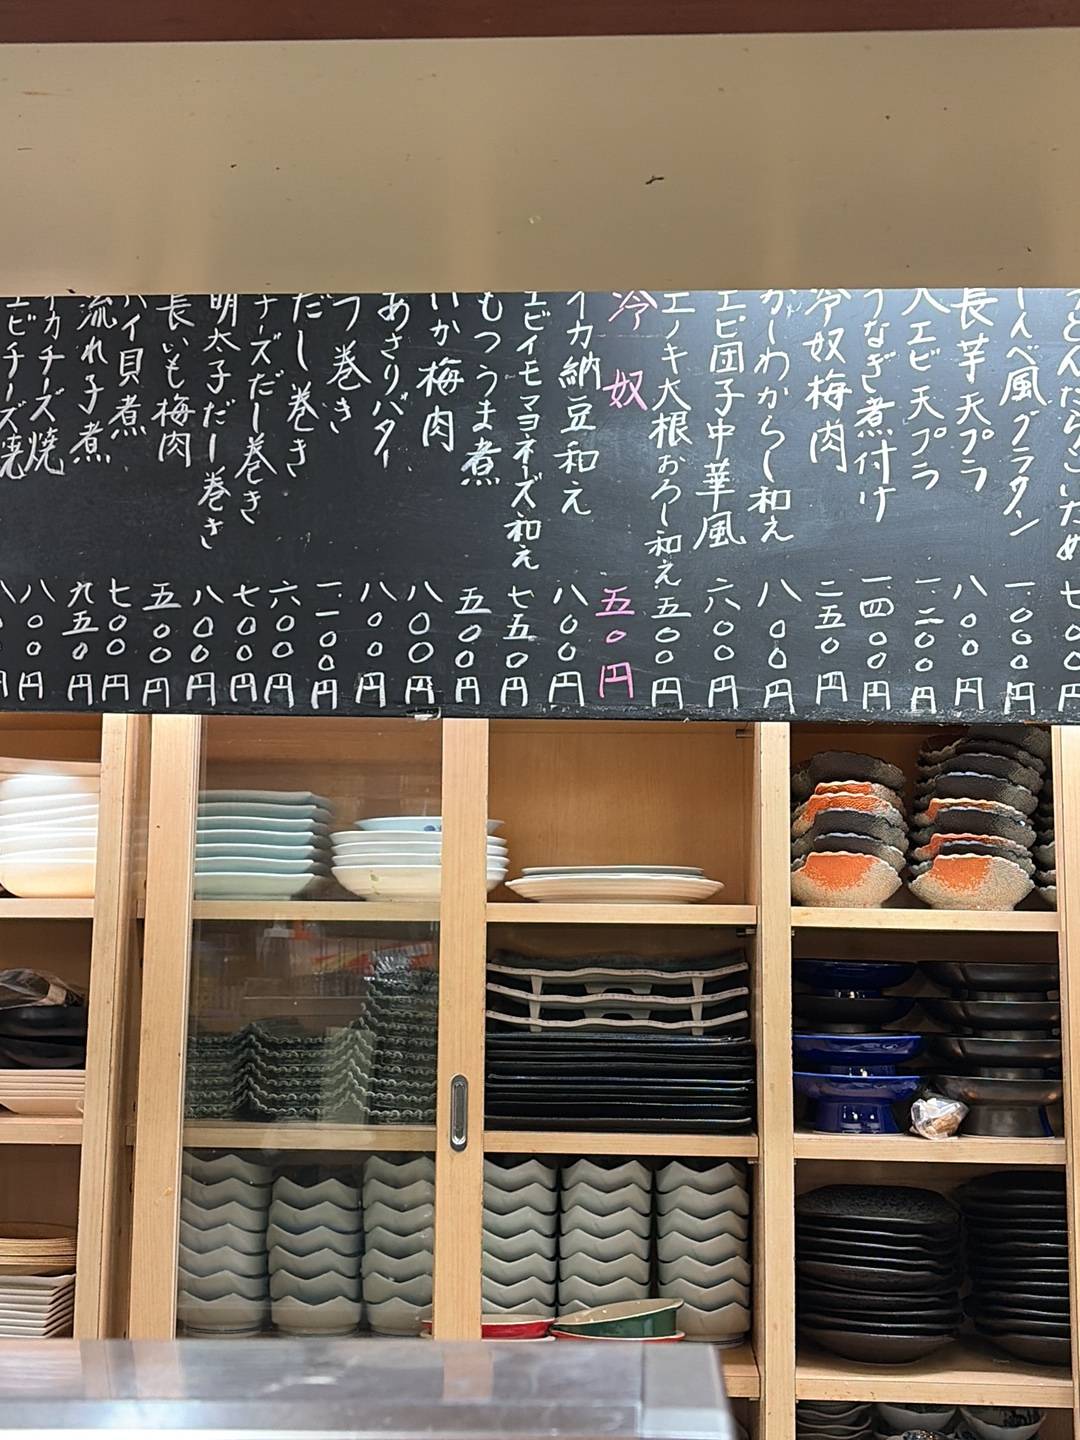 とんたらこいため 七〇〇円
んべ風グラタン 一〇〇〇円
長芋天プラ 八〇〇円
大エビ天プラ 一二〇〇円
うなぎ煮付け 一四〇〇円
冷奴梅肉 二五〇円
かしわからし和え 八〇〇円
エビ団子中華風 六〇〇円
エノキ大根おろし和え 五〇〇円
冷奴 五〇円
イカ納豆和え 八〇〇円
エビイモマヨネーズ和え 七五〇円
もつうま煮 五〇〇円
いか梅肉 八〇〇円
あさりバター 八〇〇円
う巻き 一一〇〇円
だし巻き 六〇〇円
チーズだし巻き 七〇〇円
明太子だし巻き 八〇〇円
長いも梅肉 五〇〇円
バイ貝煮 七〇〇円
流れ子煮 九五〇円
イカチーズ焼 八〇〇円
エビチーズ焼